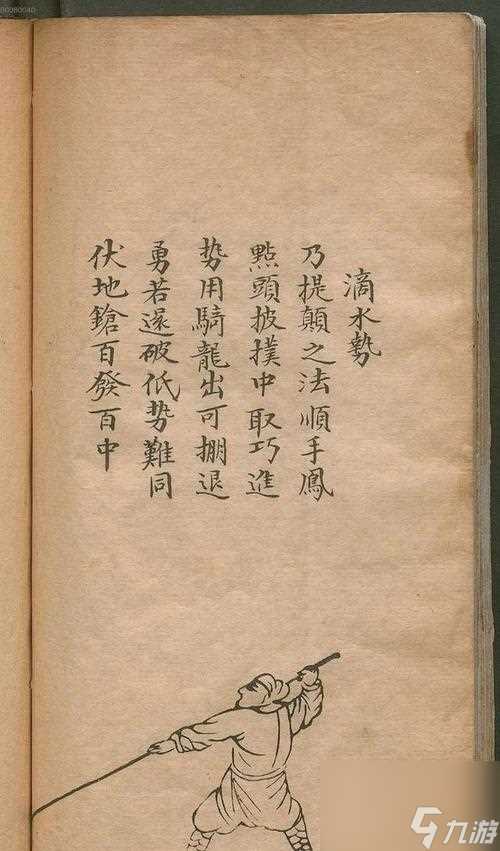 滴水勢
乃提顛之法順手鳳
點頭披撲中取巧進
势用騎龍出可掤退
勇若遝破低势難同
伏地鎗百發百中
九游